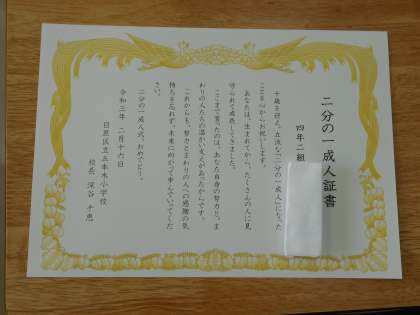 二分の一成人証書
四年二組
十歳を迎え、立派な「二分の一成人」になった
ことを心からお祝いします。
あなたは、生まれてから、たくさんの人に見
守られて成長してきました。
ここまで育ったのは、あなた自身の努力と、ま
わりの人たちの温かい支えがあったからです。
これからも、努力とまわりの人への感謝の気
持ちを忘れず、未来に向かって歩んでいってくだ
さい。
二分の一成人式、おめでとう。
令和三年 二月十六日
目黒区立五本木小学校
校長 深谷 千恵